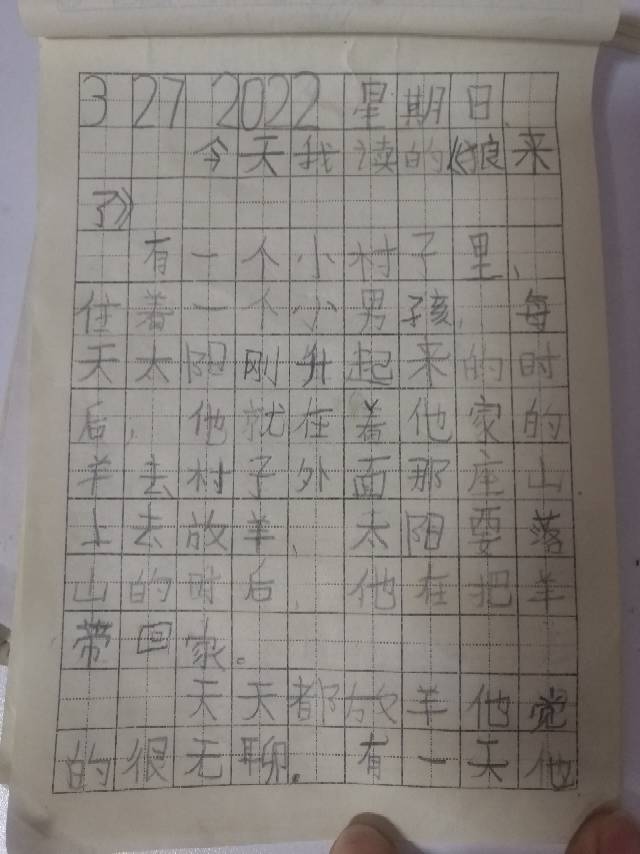 3 27 2022 星期日
今天我读的《狼来
了》
有一个小村子里、
住着一个小男孩,每
天太阳刚升起来的时
后,他就在着他家的
羊去村子外面那座山
上去放羊、太阳要落
山的时后,他在把羊
带回家。
天天都放羊他觉
的很无聊.有一天他